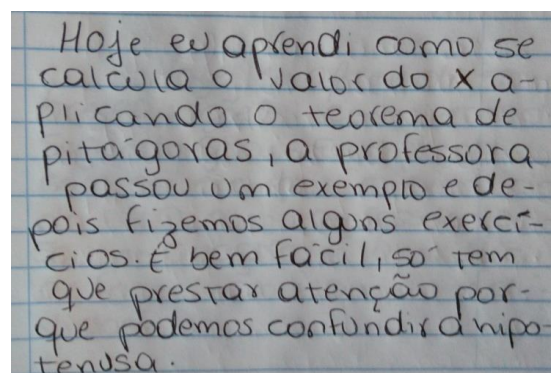 Hoje eu aprendi como se
calcula o valor do x a-
plicando o teorema de
pitágoras, a professora
passou um exemplo e de-
pois fizemos alguns exercí-
cios. É bem fácil, só tem
que prestar atenção por-
que podemos confundir a hipo-
tenusa.